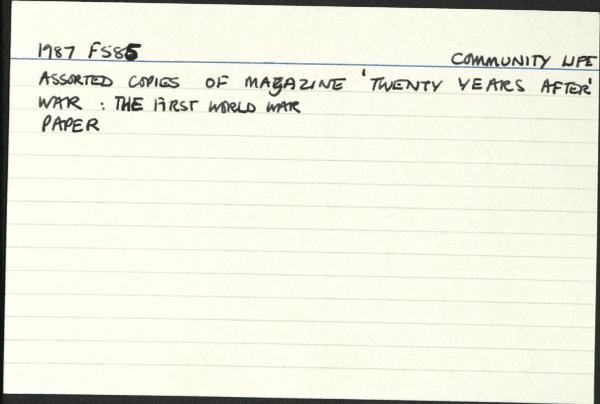 1987 FS85 COMMUNITY LIFE
ASSORTED COPIES OF MAGAZINE 'TWENTY YEARS AFTER'
WAR : THE FIRST WORLD WAR
PAPER